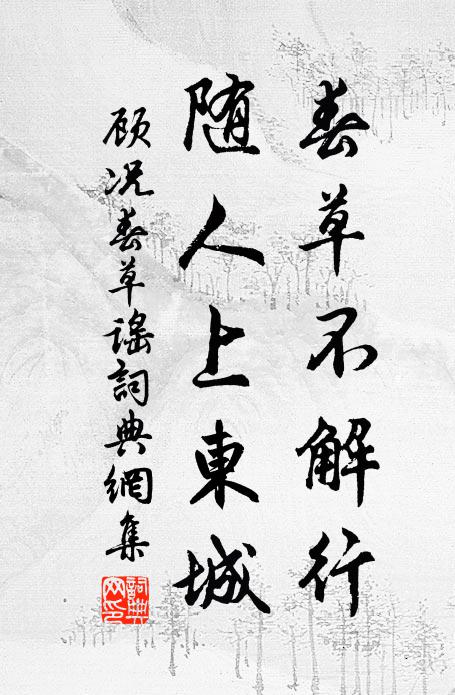 春草不解行
随人上東城
顾况春草谣詞典網集
詞典网印